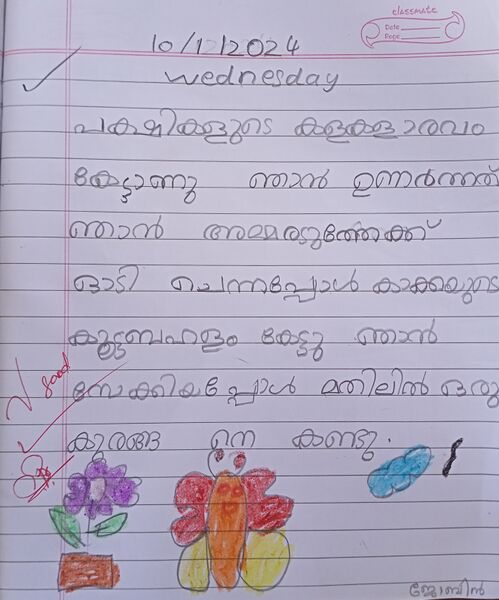 classmate
Date
Page
10/12/2024
Wednesday
പക്ഷികളുടെ കളകളാരവം
കേട്ടാണു ഞാൻ ഉണർന്നത്
ഞാൻ അമ്മരടുത്തേക്ക്
ഓടി ചെന്നപ്പോൾ കാക്കയുടെ
കൂട്ടബഹളം കേട്ടു ഞാൻ
നോക്കിയപ്പോൾ മതിലിൽ ഒരു
കുരങ്ങ നെ കണ്ടു.
Good
ജോബിൻ